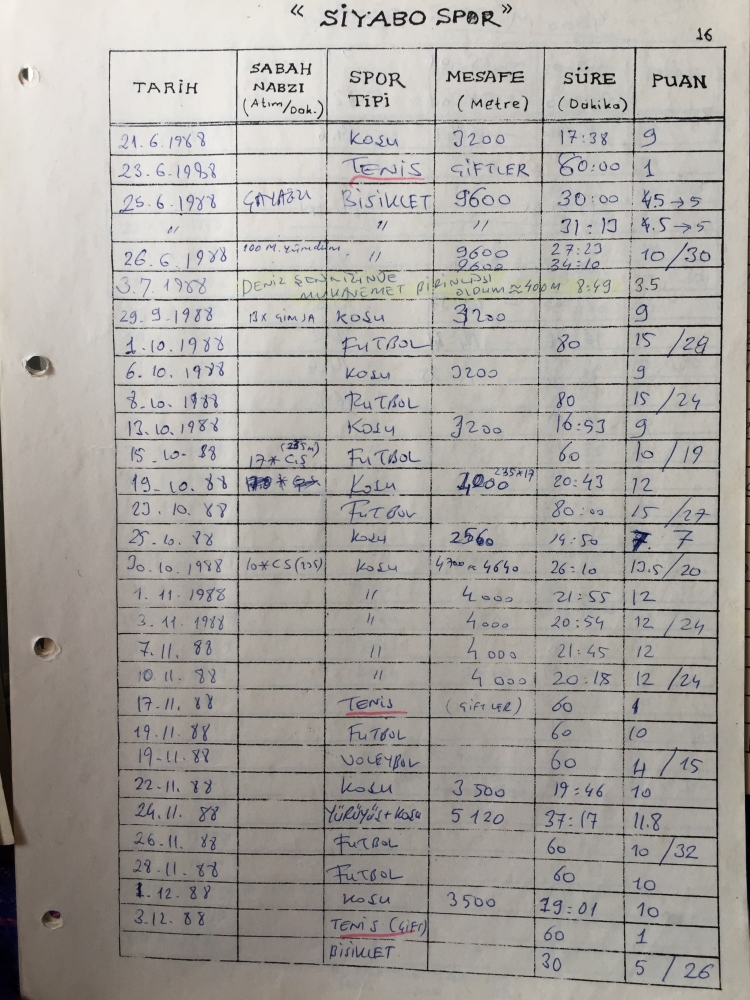 “ SİYABO SPOR”
16
TARİH SABAH NABZI (Atım/Dak.) SPOR TİPİ MESAFE (Metre) SÜRE (Dakika) PUAN
21.6.1988 KOŞU 3200 17:38 9
23.6.1988 TENİS ÇİFTLER 60:00 1
25.6.1988 ÇAYAĞZI BİSİKLET 9600 30:00 4.5→5
" " " 31:13 4.5→5
26.6.1988 100 M. yürüdüm " 9600 27:23 10/30
9600 34:10
3.7.1988 DENİZ ŞENLİĞİNDE 3.5
MUKAVEMET BİRİNCİSİ OLDUM ≈400M 8:49
29.9.1988 KOŞU 3200 9
1.10.1988 FUTBOL 80 15/24
6.10.1988 KOŞU 3200 9
8.10.1988 FUTBOL 80 15/24
13.10.1988 KOŞU 3200 16:53 9
15.10.88 17*C.S (235m) FUTBOL 60 10/19
19.10.88 KOŞU 4000 235*17 20:43 12
23.10.88 FUTBOL 80:00 15/27
25.10.88 KOŞU 2560 14:50 7
30.10.1988 KOŞU 4700≈4640 26:10 13.5/20
1.11.1988 " 4000 21:55 12
3.11.1988 " 4000 20:54 12/24
7.11.88 " 4000 21:45 12
10.11.88 " 4000 20:18 12/24
17.11.88 TENİS (ÇİFTLER) 60 1
19.11.88 FUTBOL 60 10
19.11.88 VOLEYBOL 60 4/15
22.11.88 KOŞU 3500 19:46 10
24.11.88 YÜRÜYÜŞ+KOŞU 5120 37:17 11.8
26.11.88 FUTBOL 60 10/32
28.11.88 FUTBOL 60 10
1.12.88 KOŞU 3500 19:01 10
3.12.88 TENİS (ÇİFT) 60 1
BİSİKLET 30 5/26